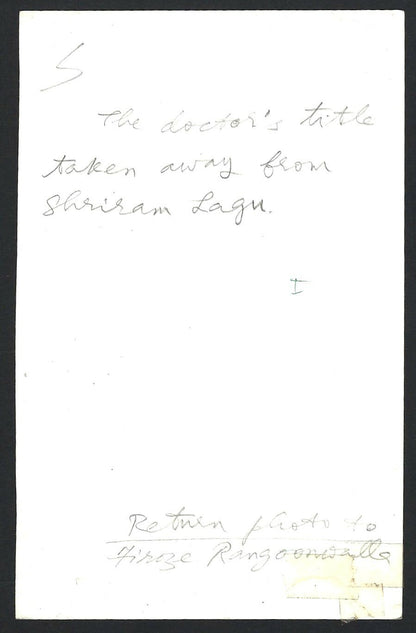 5
The doctor's title
taken away from
Shriram Lagu.
I
Return photo to
Firoze Rangoonwalla